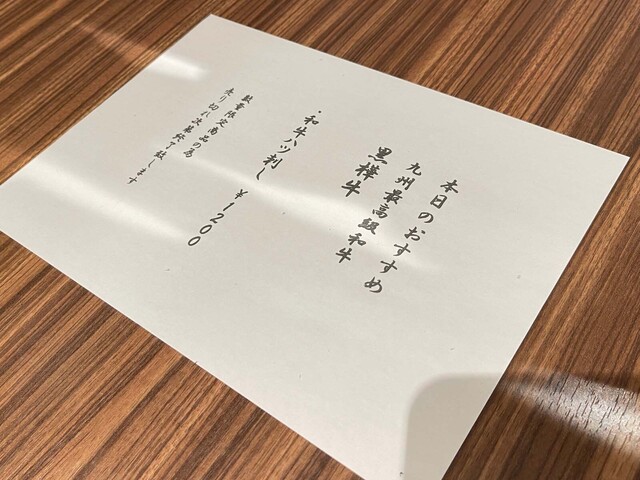 本日のおすすめ
九州最高級和牛
黒樺牛
・和牛ハツ刺し ￥1200
数量限定商品の為
売り切れ次第終了致します